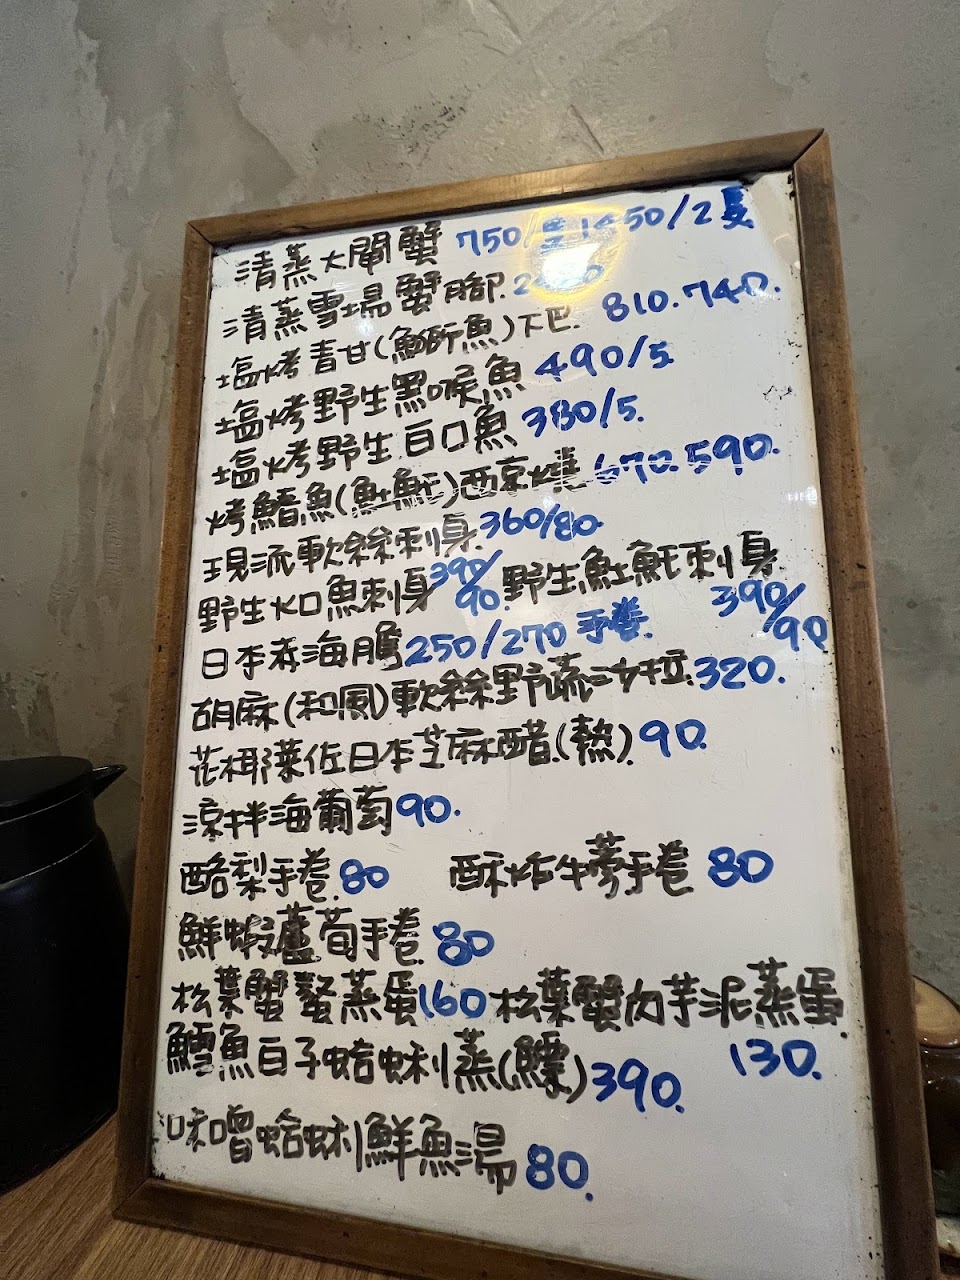 清蒸大閘蟹 750/隻 1450/2隻
清蒸雪場蟹腳.
塩烤青甘(魚鰤魚)下巴. 810.740.
塩烤野生黑喉魚 490/5
塩烤野生白口魚 380/5.
烤鰆魚(魠魠)西京燒 670.590.
現流軟絲刺身 360/80.
野生水口魚刺身 390/90. 野生魠魠刺身 390/90
日本森海膽 250/270 手卷.
胡麻(和風)軟絲野蔬沙拉 320.
花椰菜佐日本芝麻醋(熱) 90.
涼拌海葡萄 90.
酪梨手卷. 80 酥炸牛蒡手卷 80
鮮蝦蘆荀手卷 80
松葉蟹蟹蒸蛋 160 松葉蟹肉芋泥蒸蛋 130.
鱈魚白子蛤蜊蒸(鰾) 390.
味噌蛤蜊鮮魚湯 80.